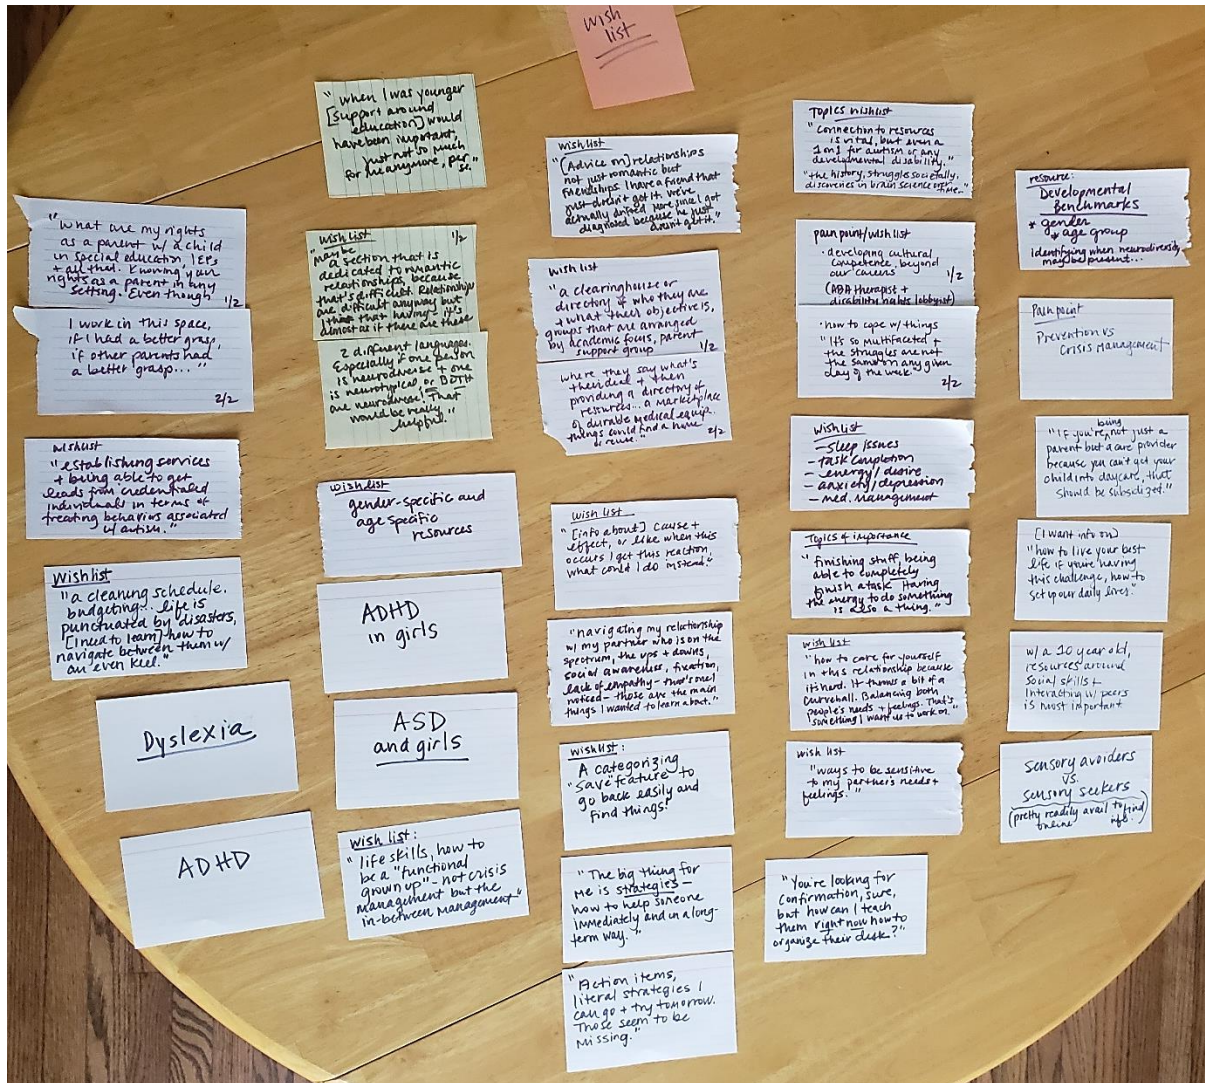 wish
list
"when I was younger
[support around
education] would
have been important,
just not so much
for me anymore, per
se."
"What are my rights
as a parent w/ a child
in special education, IEPs
+ all that. Knowing your
rights as a parent in any
setting. Even though
1/2
I work in this space,
if I had a better grasp,
if other parents had
a better grasp..."
2/2
wishlist
"establishing services
+ being able to get
leads from credentialed
individuals in terms of
treating behaviors associated
w/ autism."
Wishlist
"a cleaning schedule.
budgeting... life is
punctuated by disasters,
[I need to learn] how to
navigate between them w/
an even keel."
Dyslexia
ADHD
wish list
1/2
"maybe
a section that is
dedicated to romantic
relationships, because
that's difficult. Relationships
are difficult anyway but
I think that having - it's
almost as if there are these
2 different languages.
Especially if one person
is neurodiverse + one
is neurotypical, or BOTH
are neurodiverse! That
would be really
helpful."
wishlist
gender-specific and
age specific
resources
ADHD
in girls
ASD
and girls
wish list:
"life skills, how to
be a "functional
grown up" - not crisis
management but the
in-between management"
wish list
"[Advice on] relationships
not just romantic but
friendships. I have a friend that
just doesn't get it. We've
actually drifted more since I got
diagnosed because he just
doesn't get it."
wish list
"a clearinghouse or
directory of who they are
+ what their objective is,
groups that are arranged
by academic focus, parent
support group
1/2
where they say what's
their deal + then
providing a directory of
resources... a marketplace
of durable medical equip.
things could find a home
or reuse."
2/2
wish list
"[info about] cause +
effect, or like when this
occurs I get this reaction,
what could I do instead."
"navigating my relationship
w/ my partner who is on the
spectrum, the ups + downs,
social awareness, fixation,
lack of empathy - that's one I
noticed - those are the main
things I wanted to learn about."
wishlist:
A categorizing
"save" feature to
go back easily and
find things!
"The big thing for
me is strategies -
how to help someone
immediately and in a long-
term way."
"Action items,
literal strategies I
can go + try tomorrow.
Those seem to be
missing."
Topics wishlist
"Connection to resources
is vital, but even a
1 on 1 for autism or any
developmental disability."
"the history, struggles societally,
discoveries in brain science over
time..."
pain point/wish list
· developing cultural
competence, beyond
our careers
1/2
(ABA therapist +
disability rights lobbyist)
· how to cope w/ things
"It's so multifaceted +
the struggles are not
the same on any given
day of the week."
2/2
wishlist
- sleep issues
- task completion
- energy/desire
- anxiety/depression
- med. management
Topics of importance
"finishing stuff, being
able to completely
finish a task. Having
the energy to do something
is also a thing."
wish list
"how to care for yourself
in this relationship because
it's hard. It throws a bit of a
curveball. Balancing both
people's needs + feelings. That's
something I want us to work on."
wish list
"ways to be sensitive
to my partner's needs +
feelings."
"You're looking for
confirmation, sure,
but how can I teach
them right now how to
organize their desk?"
resource:
Developmental
Benchmarks
* gender
* age group
identifying when neurodiversity
may be present...
Pain point
Prevention vs
Crisis Management
being
"If you're not just a
parent but a care provider
because you can't get your
child into daycare, that
should be subsidized."
[I want info on]
"how to live your best
life if you're having
this challenge, how to
set up our daily lives."
w/ a 10 year old,
resources around
social skills +
interacting w/ peers
is most important
sensory avoiders
vs.
sensory seekers
(pretty readily avail to find
online info.)